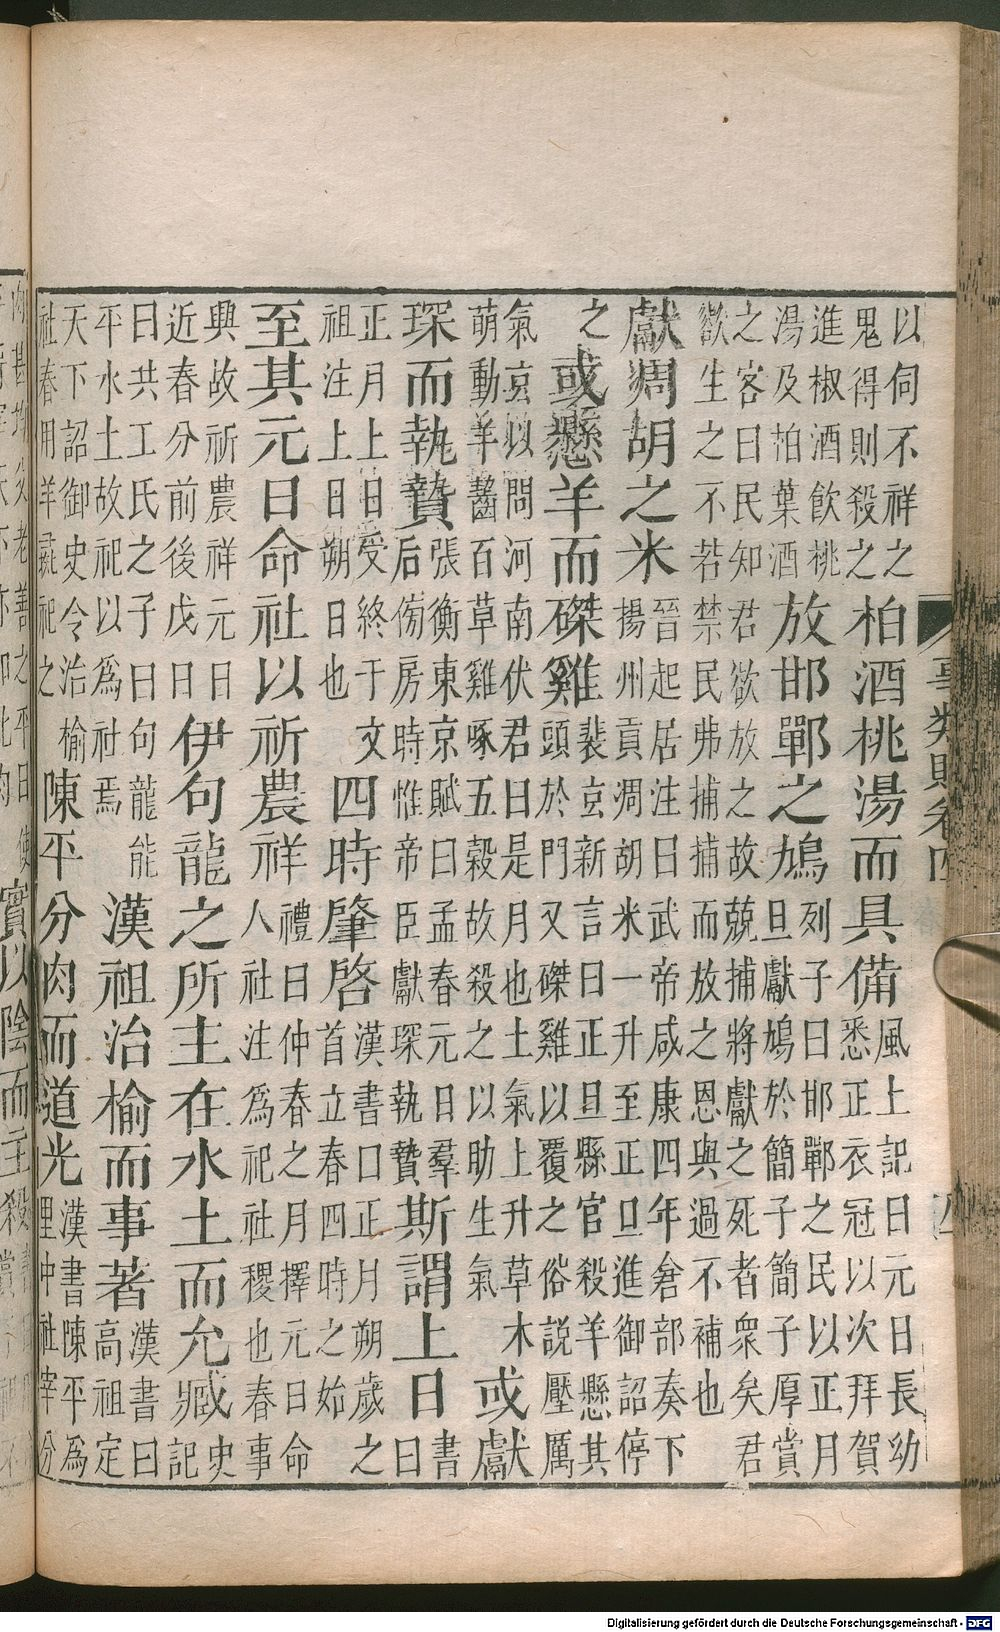 以伺不祥之
鬼得則殺之
柏酒桃湯而具備
風上記曰元日長幼
悉正衣冠以次拜賀
進椒酒飲桃
湯及柏葉酒
放邯鄲之鳩
列子曰邯鄲之民以正月
旦獻鳩於簡子簡子厚賞
之客曰民知君欲放之故競捕將獻之死者衆矣君
欲生之不若禁民弗捕捕而放之恩與過不補也
獻凋胡之米
晉起居注曰武帝咸康四年倉部奏下
揚州貢凋胡米一升至正旦進御詔停
之
或懸羊而磔雞
裴玄新言曰正旦縣官殺羊懸其
頭於門又磔雞以覆之俗説壓厲
氣玄以問河南伏君曰是月也土氣上升草木
萌動羊齧百草雞啄五穀故殺之以助生氣
或獻
琛而執贄
張衡東京賦曰孟春元日羣
后傍房時惟帝臣獻琛執贄
斯謂上日
書
曰
正月上日受終于文
祖注上日朔日也
四時肇啓
漢書曰正月朔歲之
首立春四時之始
至其元日命社以祈農祥
禮曰仲春之月擇元日命
人社注為祀社稷也春事
興故祈農祥元日
近春分前後戊日
伊句龍之所主在水土而允臧
史
記
曰共工氏之子曰句龍能
平水土故祀以為社焉
漢祖治榆而事著
漢書曰
高祖定
天下詔御史令治榆
社春用羊彘祀之
陳平分肉而道光
漢書陳平為
里中社宰分
事類賦卷四
實以陰而主殺
Digitalisierung gefördert durch die Deutsche Forschungsgemeinschaft - DFG